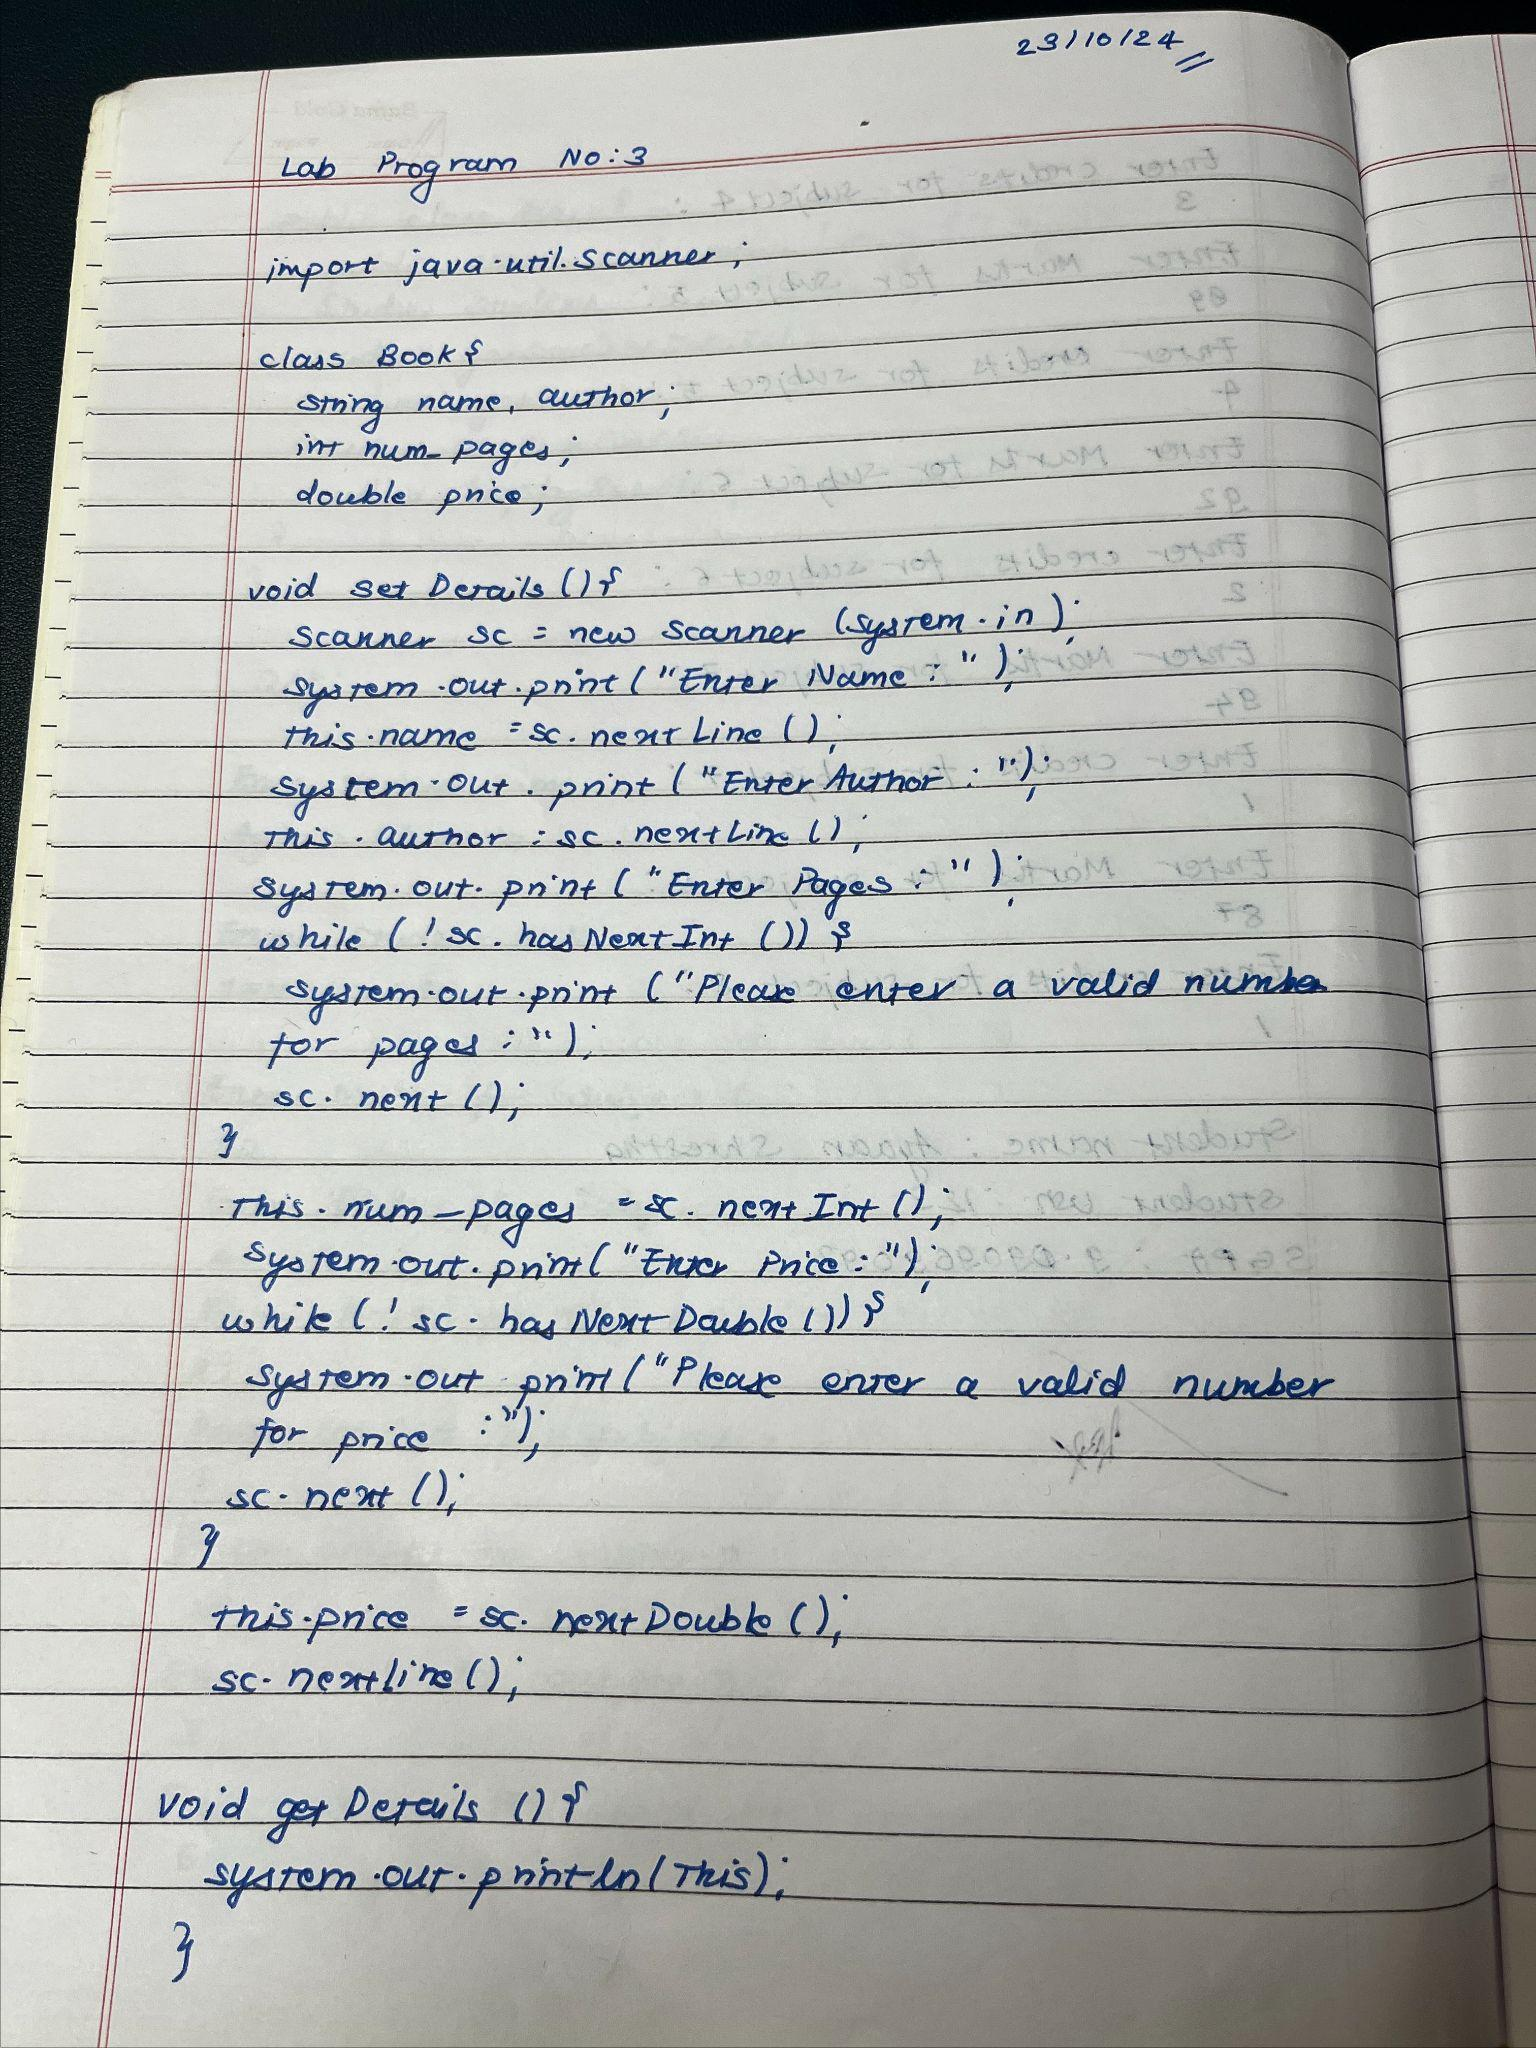 23/10/24
Lab Program No:3
import java.util.Scanner;
class Book{
String name, author;
int num_pages;
double price;
void set Details(){
Scanner sc = new Scanner (System.in);
System.out.print("Enter Name : ");
this.name = sc.nextLine();
System.out.print("Enter Author : ");
this.author = sc.nextLine();
System.out.print("Enter Pages : ");
while (! sc. hasNextInt ()) {
System.out.print ("Please enter a valid number
for pages : ");
sc. next ();
}
this. num_pages = sc. nextInt ();
System.out.print("Enter Price : ");
while (! sc. hasNextDouble ()) {
System.out.print("Please enter a valid number
for price : ");
sc. next ();
}
this.price = sc. nextDouble ();
sc. nextLine ();
void getDetails () {
System.out.println(this);
}